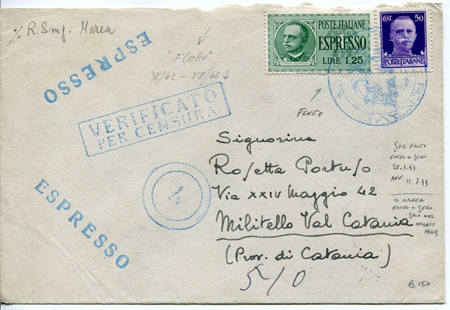 % R. Smg. Marea
ESPRESSO
"FLUTTO"
XI/42 - VII/43
POSTE ITALIANE
ESPRESSO
LIRE 1.25
CENT. 50
POSTE ITALIANE
FLUTTO
VERIFICATO
PER CENSURA
4
ESPRESSO
Signorina
Rosetta Portuso
Via XXIV Maggio 42
Militello Val Catania
(Prov. di Catania)
5/0
FLUTTO
11.7.43
IL MAREA
B 150